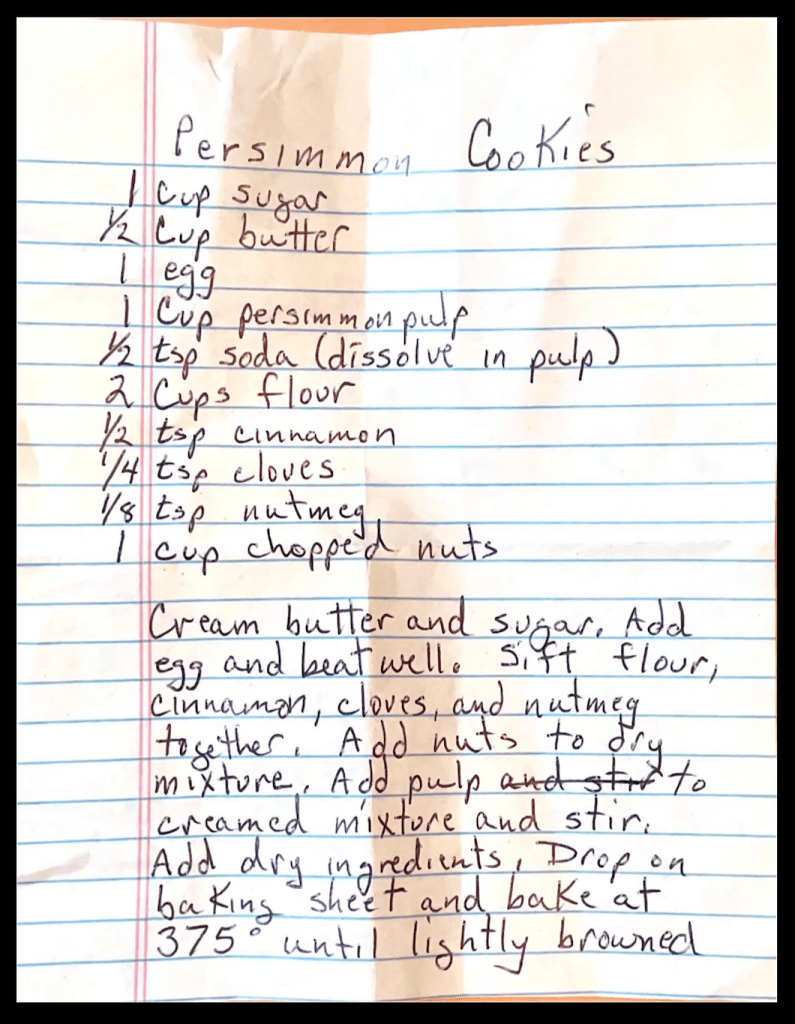 Persimmon Cookies
1 Cup sugar
1/2 Cup butter
1 egg
1 Cup persimmon pulp
1/2 tsp soda (dissolve in pulp)
2 Cups flour
1/2 tsp cinnamon
1/4 tsp cloves
1/8 tsp nutmeg
1 cup chopped nuts
Cream butter and sugar. Add
egg and beat well. Sift flour,
cinnamon, cloves, and nutmeg
together. Add nuts to dry
mixture. Add pulp and stir to
creamed mixture and stir.
Add dry ingredients. Drop on
baking sheet and bake at
375° until lightly browned